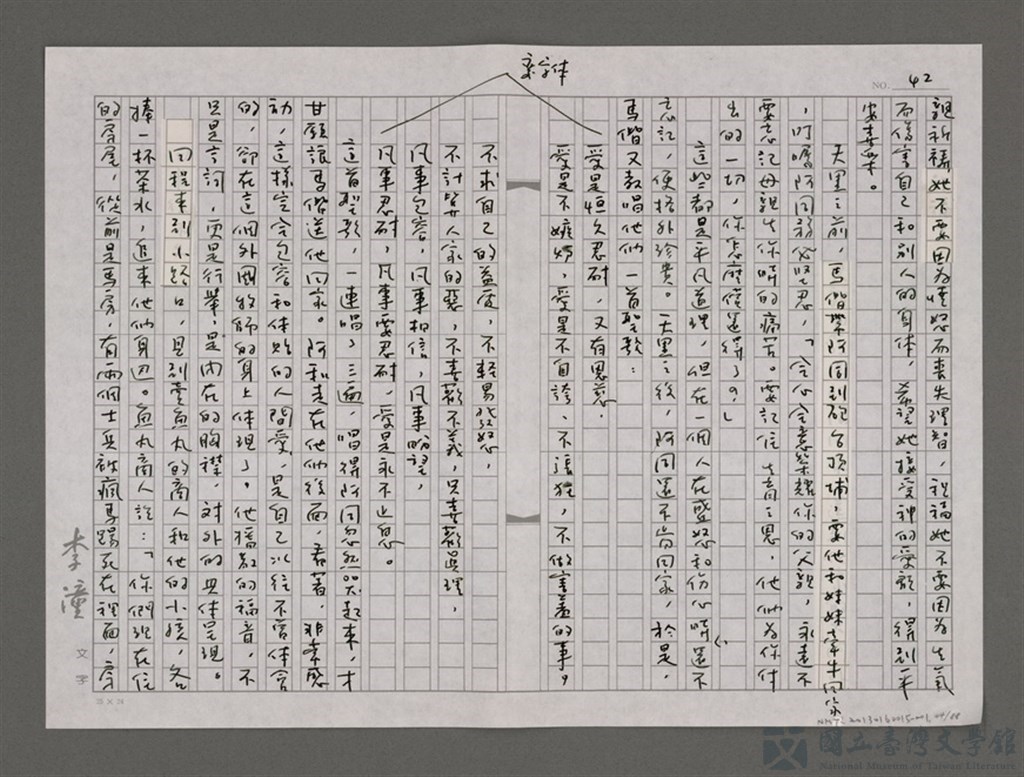 楷字体
NO. 42
親祈禱她不要因為憤怒而喪失理智，祝福她不要因為生氣
而傷害自己和別人的身体，希望她接受神的愛顧，得到平
安喜樂。
天黑之前，馬偕帶阿同到砲台頂埔，要他和妹妹牽牛回家
，叮嚀阿同務必堅忍，「全心全意榮耀你的父親，永遠不
要忘記母親生你時的痛苦。要記住生育之恩，他們為你付
出的一切，你怎麼償還得了？」
這些都是平凡道理，但在一個人在盛怒和傷心時還不
忘記，便格外珍貴。天黑之後，阿同還不肯回家，於是，
馬偕又教唱他們一首聖歌：
愛是恒久忍耐，又有恩慈，
愛是不嫉妒，愛是不自誇，不張狂，不做害羞的事，
不求自己的益處，不輕易發怒，
不計算人家的惡，不喜歡不義，只喜歡真理，
凡事包容，凡事相信，凡事盼望，
凡事忍耐，凡事要忍耐，愛是永不止息。
這首聖歌，一連唱了三遍，唱得阿同忽然哭起來，才
甘願讓馬偕送他回家。阿和走在他們後面，看著，非常感
動，這樣完全包容和体貼的人間愛，是自己以往不曾体會
的，卻在這個外國牧師的身上体現了。他播散的福音，不
只是言詞，更是行舉，是內在的胸襟，對外的具体呈現。
回程来到小路口，見到賣魚丸的商人和他的小孩，各
捧一杯茶水，追來他們身边。魚丸商人說：「你們現在住
的房屋，從前是馬房，有兩個士兵被瘋馬踢死在裡面，房
李潼
文字
25 × 24
NMTL 20130160015-001 44/88
國立臺灣文學館
National Museum of Taiwan Literature